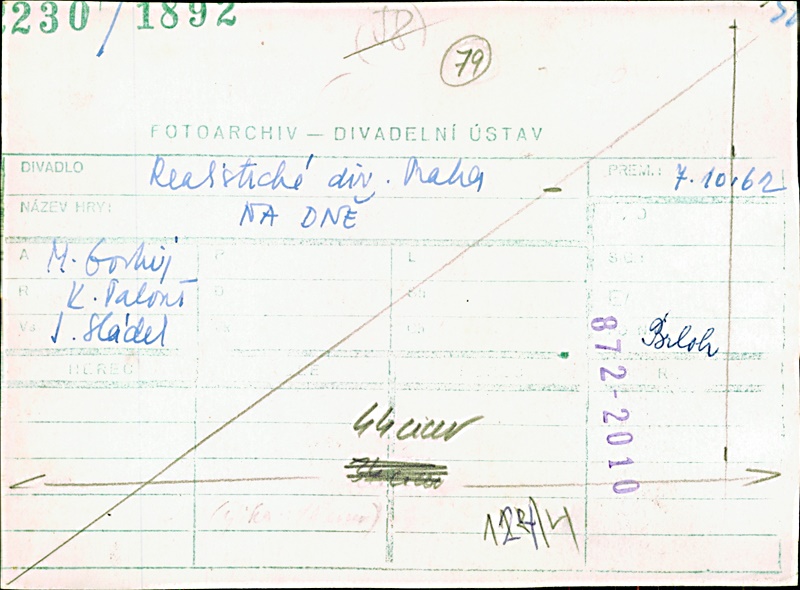 230/1892
(J8)
79
FOTOARCHIV — DIVADELNÍ ÚSTAV
DIVADLO Realistické div. Praha PREM.: 7.10.62
NÁZEV HRY: NA DNĚ
A M. Gorkij P L
R K. Palouš
Vs J. Sládek
Brloh
HEREC
872-2010
44 cicer
127/4